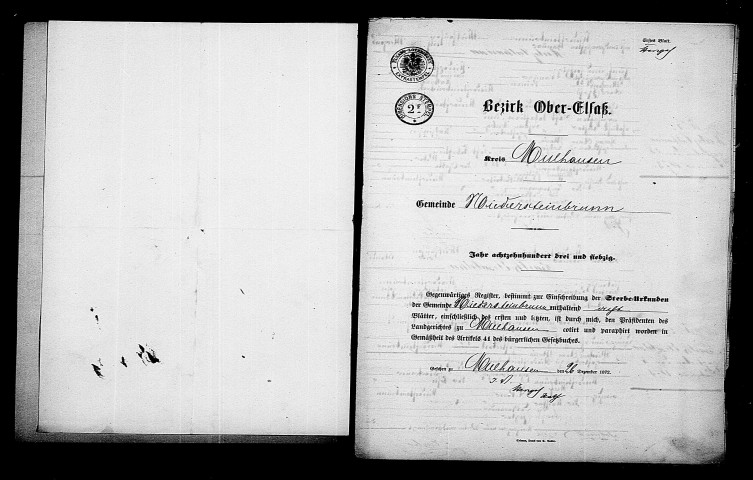 Erstes Blatt.
DIMENSIONS STEMPEL
2
EXTRASTEMPEL
Bezirk Ober-Elsaß.
Kreis Mülhausen
Gemeinde Niedersteinbrunn
Jahr achtzehnhundert drei und siebzig.
Gegenwärtiges Register, bestimmt zur Einschreibung der Sterbe-Urkunden
der Gemeinde Niedersteinbrunn enthaltend
Blätter, einschließlich des ersten und letzten, ist durch mich, den Präsidenten des
Landgerichtes zu Mülhausen cotirt und paraphirt worden in
Gemäßheit des Artikels 41 des bürgerlichen Gesetzbuches.
Gesehen zu Mülhausen den 26 Dezember 1872.